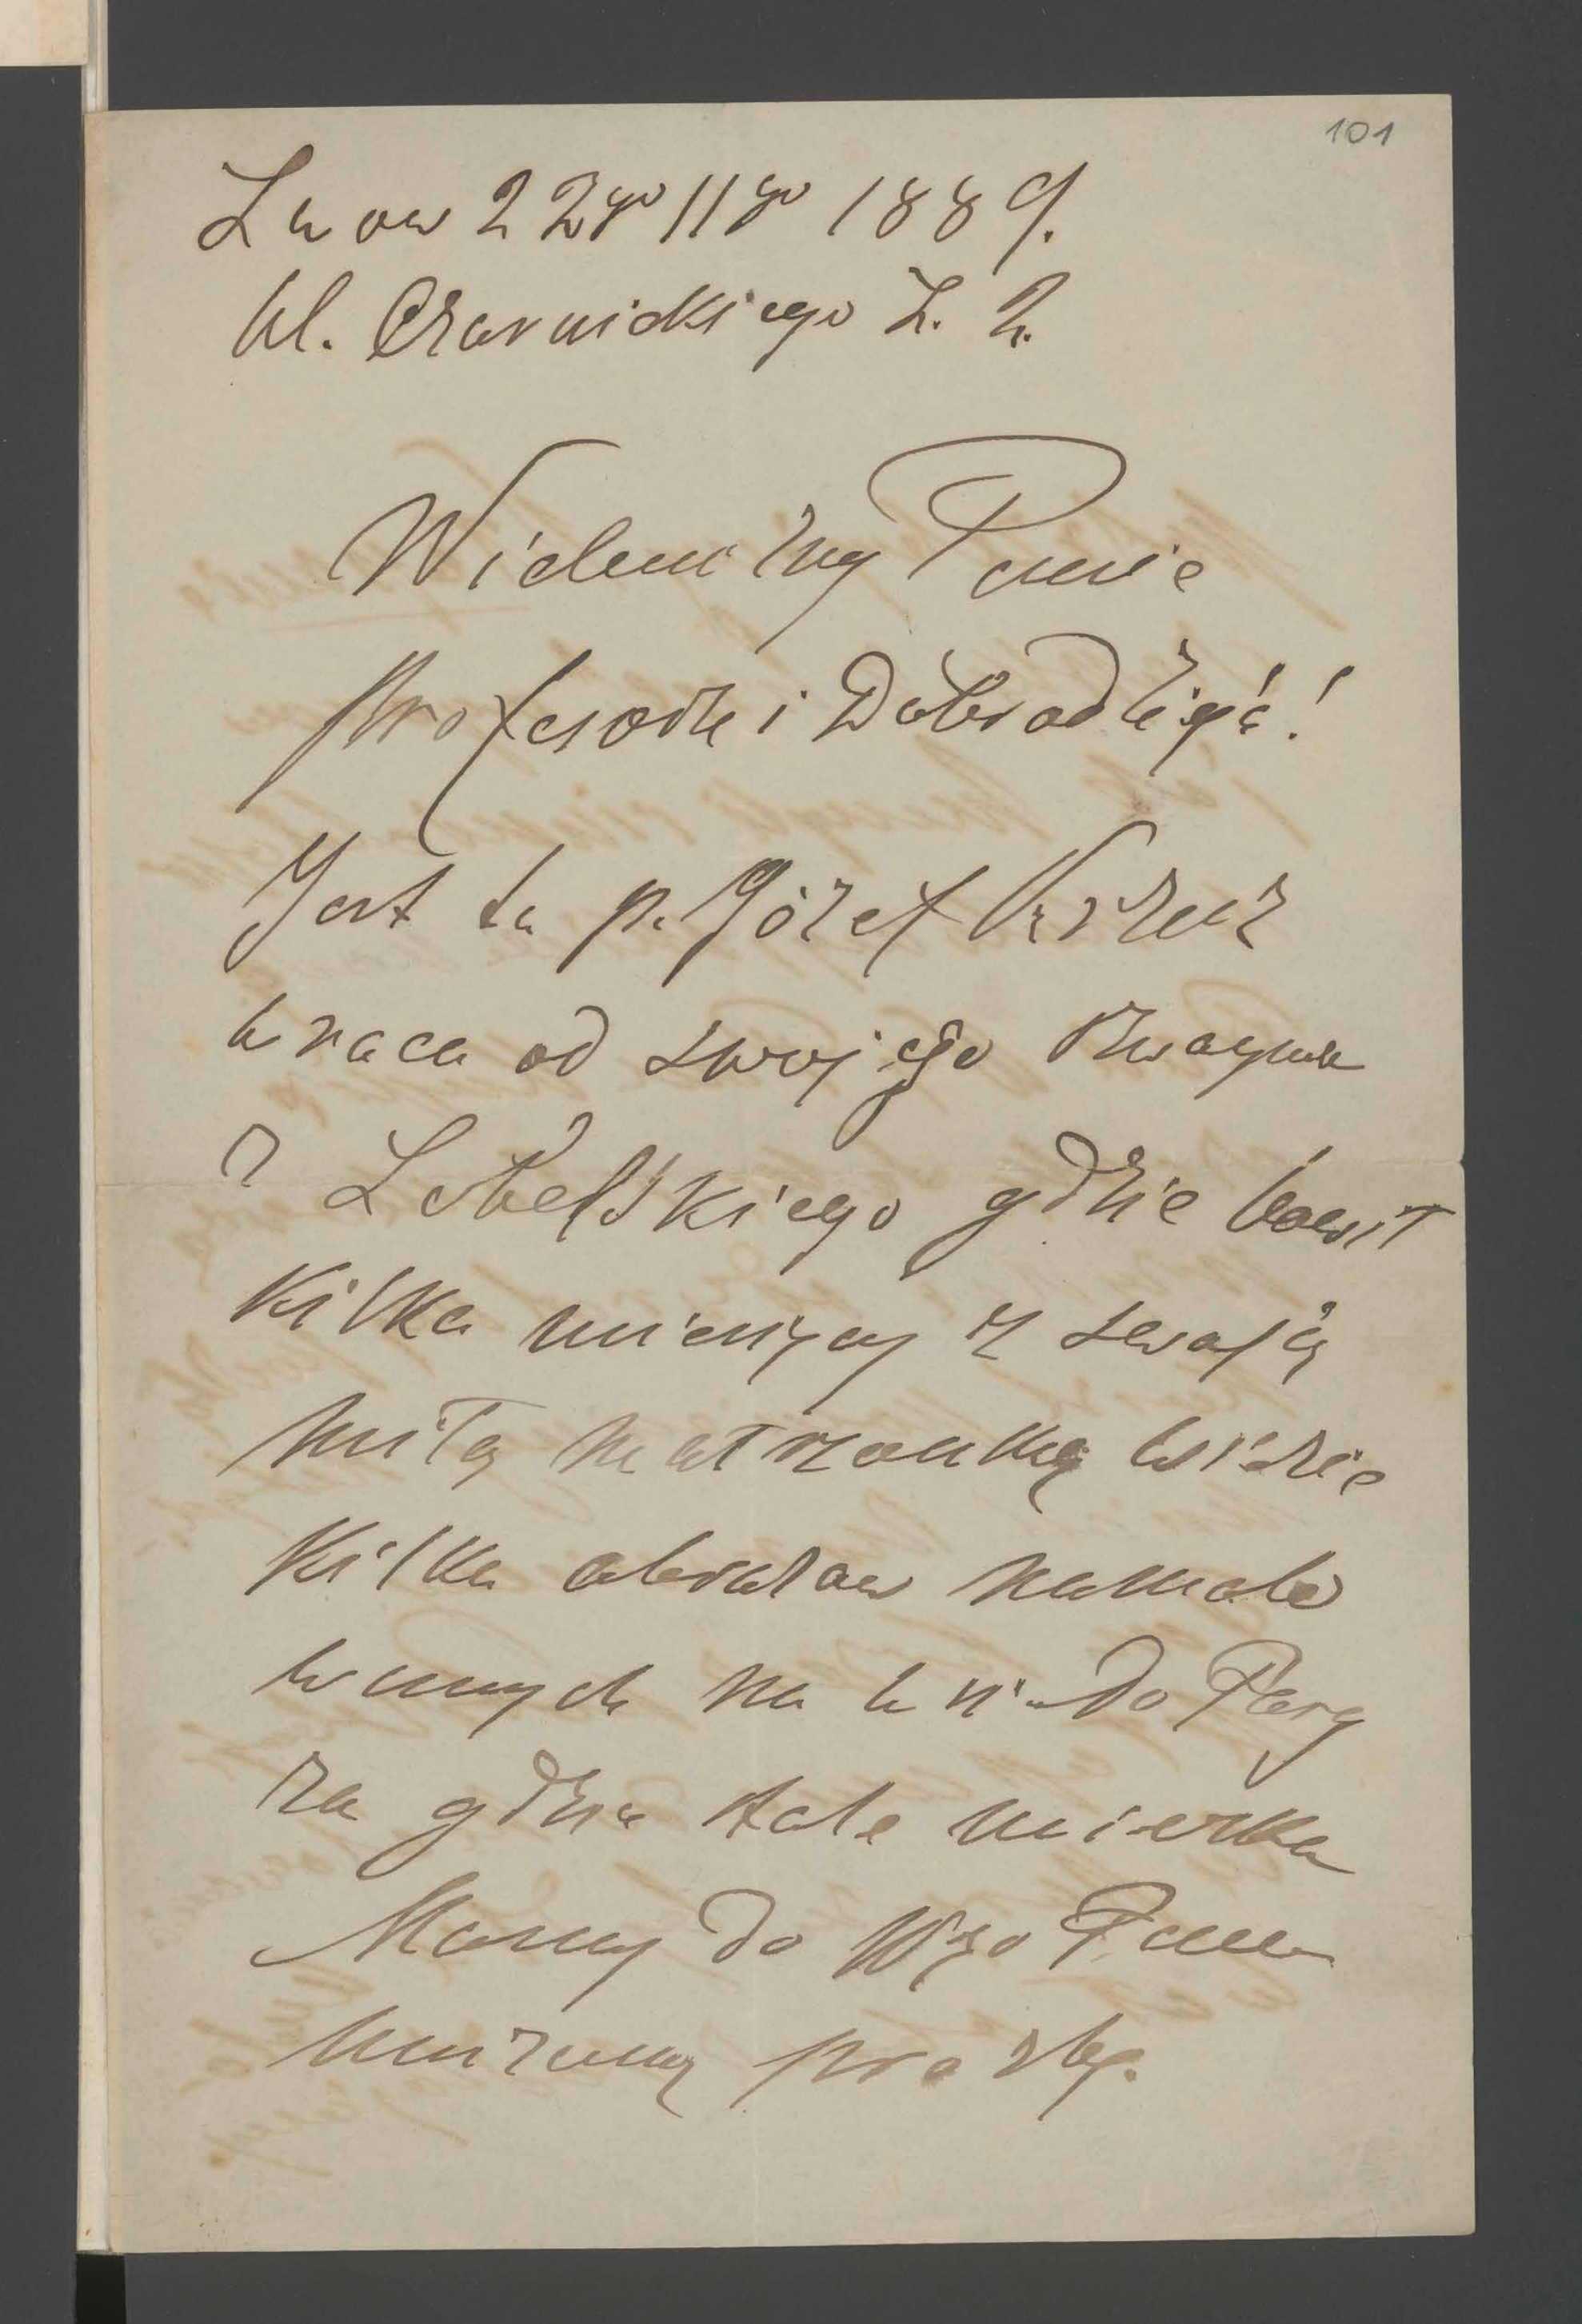 101
Lwow 22go 11go 1889.
Ul. Czarnickiego L. 2.
Wielmożny Panie
Profesorze i Dobrodzieju!
Jest tu p. Józef
wraca od swojego szwagra
z Lubelskiego gdzie bawił
kilka miesięcy z swoją
miłą małżonką wiezie
kilka obrazow namalo
wanych na wsi do Pary
ża gdzie stale mieszka
Mamy do Wgo Pana
uniżoną prośbę.